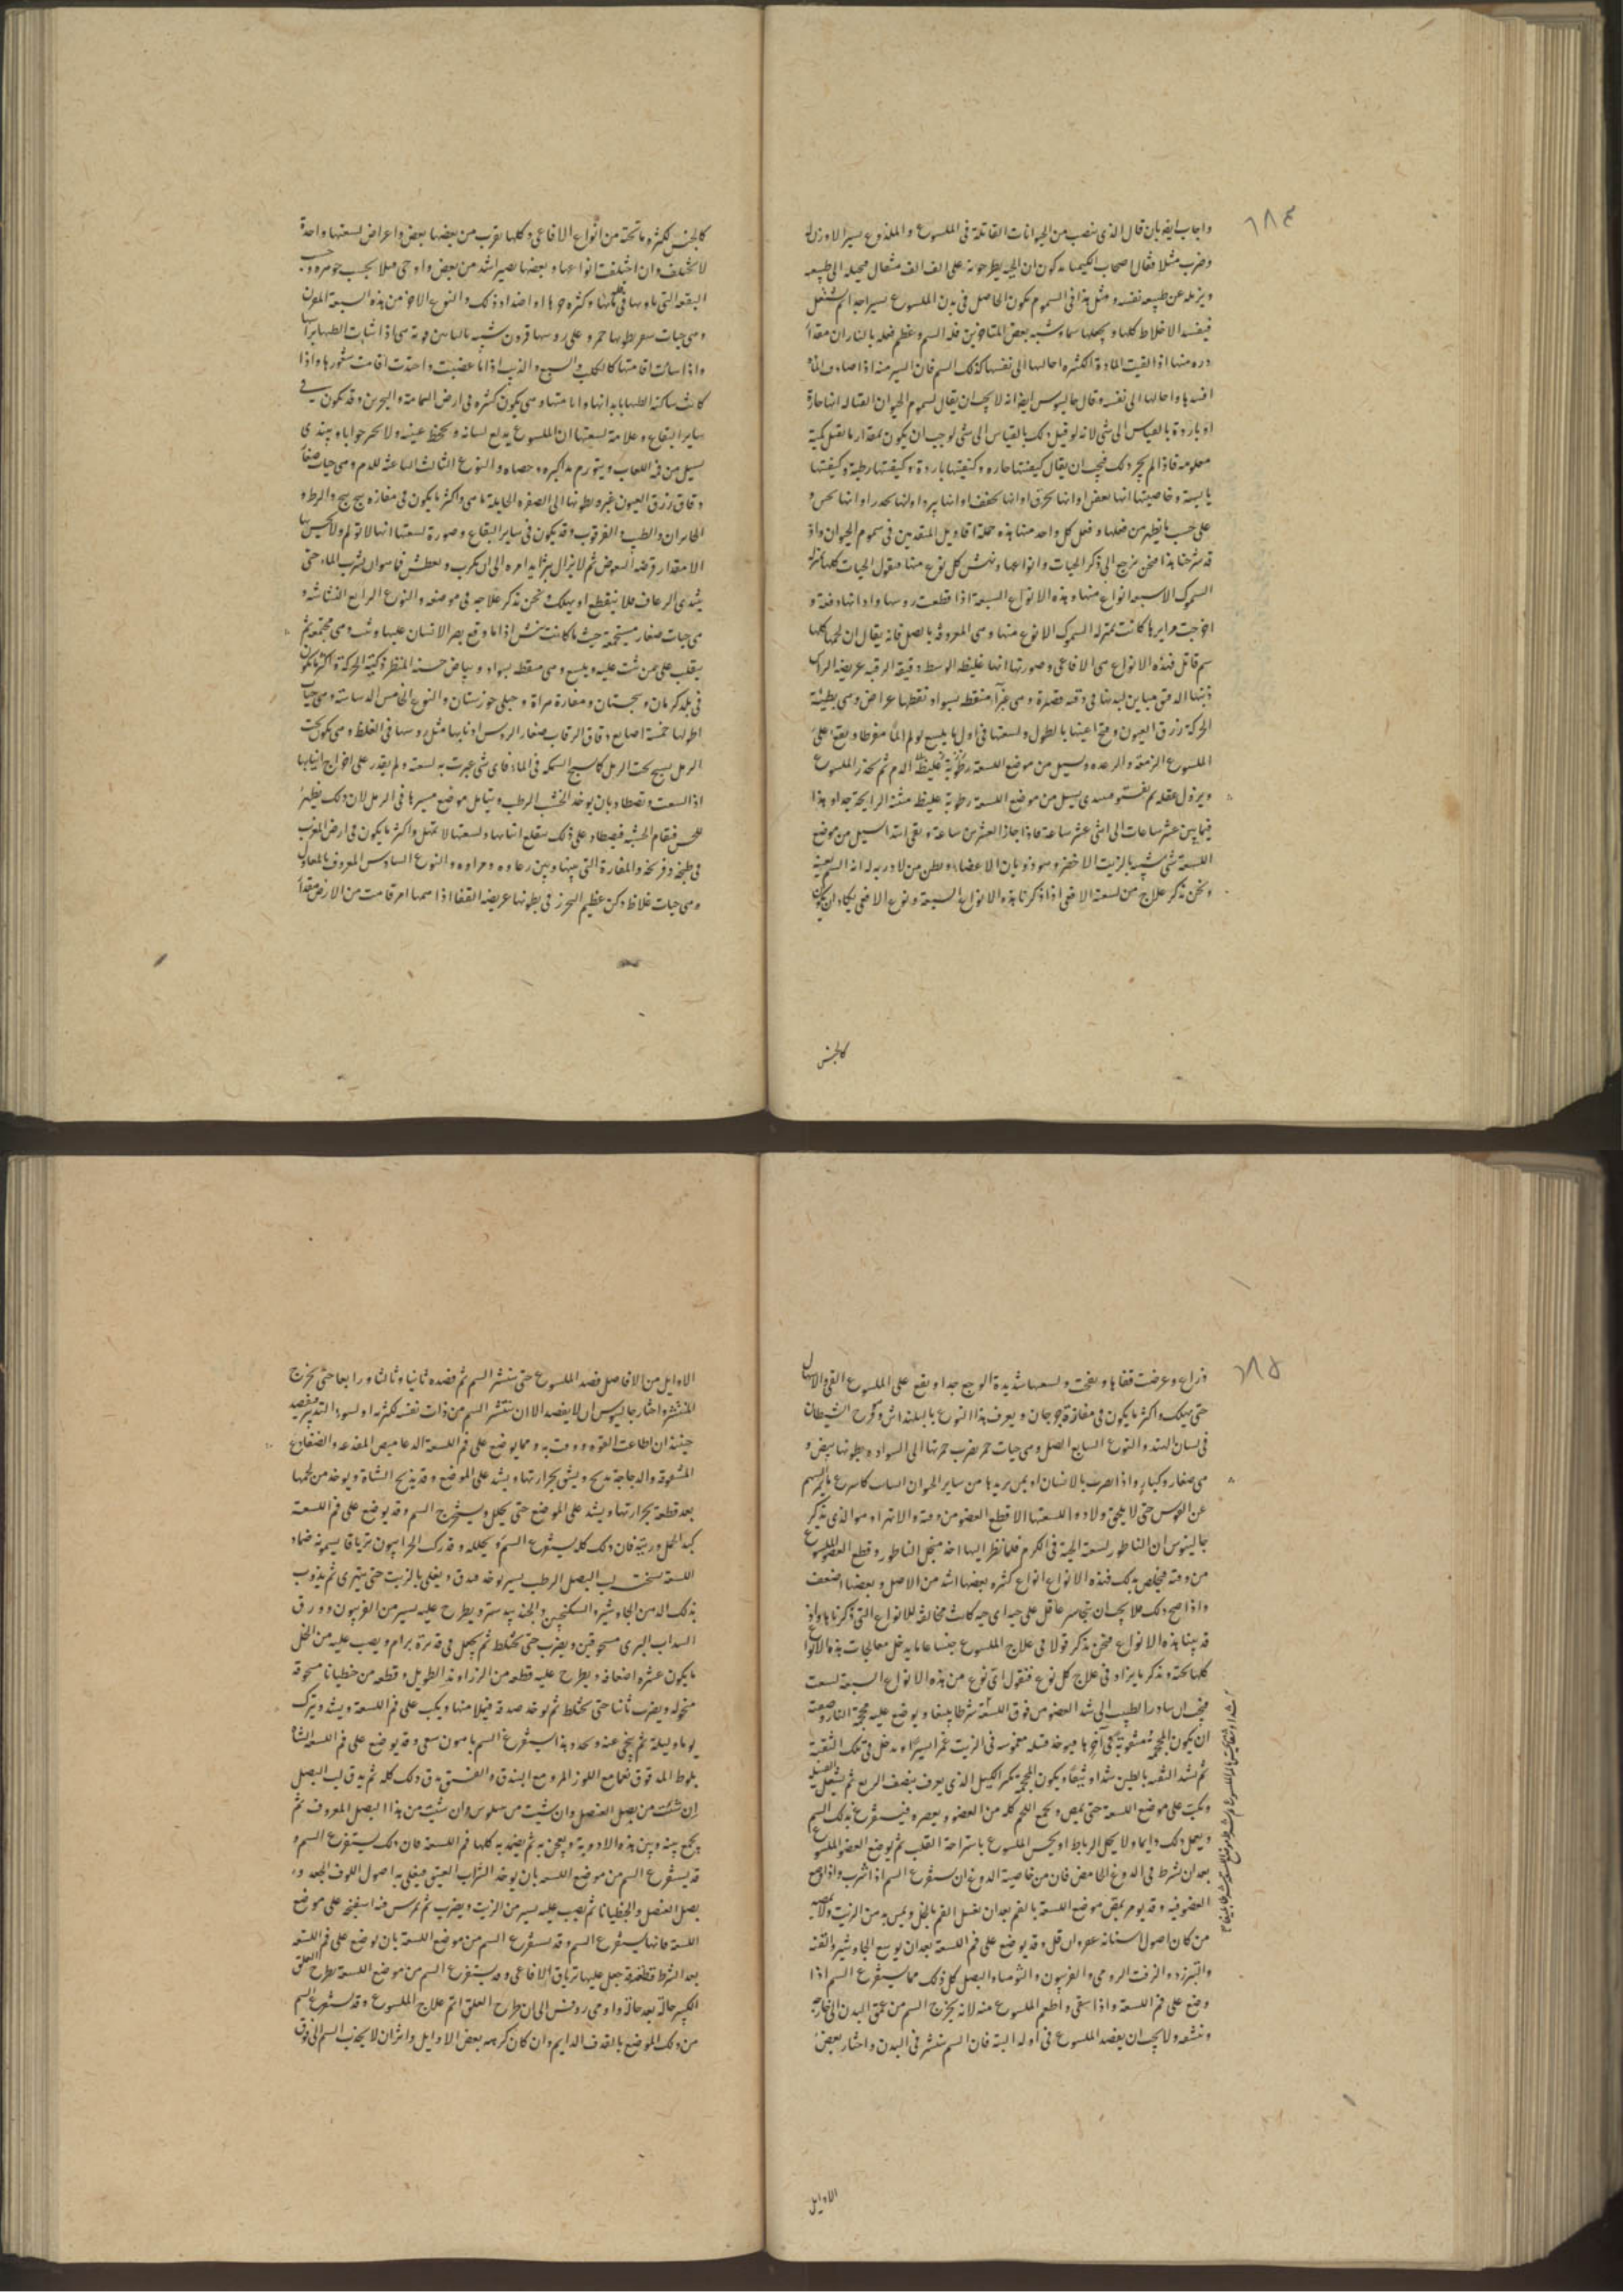 ٦٨٤
واجاب ايضا بان قال الذى ينصب من الحيوانات القاتلة فى الملسوع والملذوع يسير الاوزن له
وضرب مثلا فقال اصحاب الكيميا يذكرون ان الجزء يطرحونه على الف الف مثقال فيحيله الى طبيعه
ويزيله عن طبيعه نفسه ومثل هذا فى السموم يكون الحاصل فى بدن الملسوع يسيرا جدا ثم يشتعل
فيفسد الاخلاط كلها ويجعلها سما وشبه بعض المتاخرين فعل السم وعظم فعله بالنار ان مقدار
ذرة منها اذا لقيت المادة الكثيرة احالتها الى نفسها كذلك السم فان اليسير منه اذا صادف المادة
افسدها واحالها الى نفسه وقال جالينوس ايضا انه لا يجب ان يقال لسموم الحيوان القتاله انها حارة
او باردة بالقياس الى شى لانه لو قيل ذلك بالقياس الى شى لوجب ان يكون بمقدار ما يقبل كمية
معلومه فاذا لم يجز ذلك فيجب ان يقال كيفيتها حاره وكيفيتها باردة وكيفيتها رطبة وكيفيتها
يابسة وخاصيتها انها تعفن او انها تحرق او انها تجفف او انها تبرد او انها تخدر او انها تحس و
على حسب ما يظهر من فعلها وفعل كل واحد منها هذه جملة اقاويل المتقدمين فى سموم الحيوان واذ
قد شرحنا هذا فنحن نرجع الى ذكر الحيات وانواعها ونهش كل نوع منها فنقول الحيات كلها بمنزلة
السموك الا سبعة انواع منها وهذه الانواع السبعة اذا قطعت روسها واذنابها دفعة و
اخرجت مرايرها كانت بمنزلة السموك الا نوع منها وهى المعروفة بالصل فانه يقال ان لحمها كلها
سم قاتل فهذه الانواع هى الافاعى وصورتها انها غليظه الوسط دقيقة الرقبه عريضه الراس
ذنبها الدقيق مباين لبدنها فى دقه قصيرة وهى غبرآ منقطه بسواد نقطها عراض وهى بطيئة
الحركة زرق العيون وفتح اعينها بالطول ولسعتها فى اول ما يلسع يولم الما مفرطا ويقع على
الملسوع الزمنة والرعده ويسيل من موضع اللسعة رطوبة غليظة الدم ثم تخدر الملسوع
ويزول عقله ثم يسيل من موضع اللسعة رطوبة غليظه منتنة الرايحة جدا وهذا
فيما بين عشر ساعات الى اثنى عشر ساعة فاذا جاز العشرين ساعة وبقى ابتدا يسيل من موضع
اللسعة شى شبيه بالزيت الاخضر وهو ذوبان الاعضاء ويظن من لا دربه له انه السم بعينه
ونحن نذكر علاج من لسعته الافعى اذا ذكرنا هذه الانواع السبعة ونوع الافعى يكاد ان يكون
كالجنس
كالجنس لكثرة ما تحته من انواع الافاعى وكلها يقرب من بعضها بعض واعراض لسعتها واحدة
لا تختلف وان اختلفت انواعها وبعضها يصير اشد من بعض واوحى قتلا بحسب جوهره وحسب
البقعه التى ياويها فى قلة مائها وكثرة حرها او اضداد ذلك والنوع الاخر من هذه السبعة المقرن
وهى حيات بطونها حمر وعلى روسها قرون
واذا سالت اقامتها كالكلب والسبع والذيب اذا ما غضبت واحتدت اقامت شعورها واذا
كانت ساكنه وهى يكون كثيره فى ارض اليمامة والبحرين وقد يكون فى
ساير البقاع وعلامة لسعتها ان الملسوع يدلع لسانه وتجحظ عينه ولا يحير جوابا ويبتدى
يسيل من فيه اللعاب ويتورم مذاكيره وخصاه والنوع الثالث الباعثه للدم وهى حيات صغار
دقاق زرق العيون غبر بطونها الى الصفره واكثر ما يكون فى مفازه
وقد يكون فى ساير البقاع وصورة لسعتها انها لا تولم ولا يحس بها
الا مقدار قرصة البعوض ثم لا يزال يتزايد امره الى ان يكرب ويعطش فاسوان يشرب الماء حتى
يبتدى الرعاف فلا ينقطع او يهلك ونحن نذكر علاجه فى موضعه والنوع الرابع النشاشه و
هى حيات صغار مستجمعة حيث ما كانت تنش اذا ما وقع بصر الانسان عليها وثبت وهى مجتمعه ثم
ينقلب على من تثب عليه ويلسع وهى منقطه بسواد وبياض حسنه المنظر ذكية الحركة واكثر ما يكون
فى بلد كرمان وسجستان ومفازة هراة وجبلى خوزستان والنوع الخامس الدساسة وهى حيات
اطولها خمسة اصابع دقاق الرقاب صغار الروس اذنابها مثل روسها فى الغلظ وهى يكون تحت
الرمل يسبح تحت الرمل كما يسبح السمكه فى الماء فاى شى عبرت به لسعته ولم يقدر على اخراج انيابها
اذا لسعت وتصطاد بان يوخذ الخشب الرطب ويتامل موضع مسيرها فى الرمل لان ذلك يظهر
للحس فيقام الخشبه فيصطاد على ذلك بقلع انيابها ولسعتها لا تمهل واكثر ما يكون فى ارض المغرب
فى طنجه وفرنجه والمفازة التى بينها وبين والنوع السادس المعروف بالمعاول
وهى حيات غلاظ دكن عظيم الحزز فى بطونها عريضه القفا اذا همها امر قامت من الارض مقدار
٦٨٥
ذراع وعرضت قفاها ونفخت ولسعها شديدة الوجع جدا ويقع على الملسوع القى والاسهال
حتى يهلك واكثر ما يكون فى مفازة جوجان ويعرف هذا النوع بالبلنداش وكرح الشيطان
فى لسان الهند والنوع السابع الصل وهى حيات حمر يضرب حمرتها الى السواد وبطونها بيض و
هى صغار وكبار واذا بصرت بالانسان او بمن يريدها من ساير الحيوان انساب كاسرع ما يمر السهم
عن القوس حتى لا يلحق ولا دواء للسعتها الا قطع العضو من وقته والا تهراء وهو الذى يذكر
جالينوس ان الناطور لسعته الحية فى الكرم فلما نظر اليها اخذ منجل الناطور وقطع العضو الملسوع
من وقته فخلص بذلك فهذه الانواع انواع كثيره بعضها اشد من الاصل وبعضها اضعف
واذا صح ذلك فلا يجب ان يتجاسر عاقل على حيه اى حيه كانت مخالفة للانواع التى ذكرناها واذ
قد بينا هذه الانواع فنحن نذكر قولا فى علاج الملسوع جنسا عاما يدخل معالجات هذه الانواع
كلها تحته ونذكر ما يزاد فى علاج كل نوع فنقول اى نوع من هذه الانواع السبعة لسعت
فيجب ان يبادر الطبيب الى شد العضو من فوق اللسعة شرطا بليغا ويوضع عليه محجمة النار وصفته
ان يكون المحجمه مثقوبة فى آخرها فيوخذ فتيله مغموسه فى الزيت غمرا يسيرا ويدخل فى تلك الثقبة
ثم تشد الثقبه بالطين شدا وثيقا ويكون المحجمه بكبر الكيل الذى يعرف بنصف الربع ثم تشعل الفتيلة
ويكب على موضع اللسعة حتى يمص ويجمع اللحم كله من العضو ويعصره فيستفرغ بذلك السم
ويعمل ذلك دايما ولا يحل الرباط او يحس الملسوع باستراحة القلب ثم يوضع العضو الملسوع
بعد ان شرط فى الدوغ الحامض فان من خاصية الدوغ ان يستفرغ السم اذا شرب واذا وضع
العضو فيه وقد يومر بمص موضع اللسعة بالفم بعد ان يغسل الفم بالخل ويمس بدهن الزيت ولا يمصه
من كان اصول اسنانه عفره وان قل وقد يوضع على فم اللسعة بعد ان يوسع الجاوشير والقنه
والتبرزد والزفت الرومى والفربيون والثوم وماء البصل كل ذلك مما يستفرغ السم اذا
وضع على فم اللسعة واذا سقى واطعم الملسوع منه لانه يخرج السم من عمق البدن الى خارجه
وينشفه ولا يجب ان يفصد الملسوع فى اوله البتة فان السم ينتشر فى البدن واختار بعض
الاوايل
الاوايل من الافاضل فصد الملسوع حتى ينتشر السم ثم فصده ثانيا وثالثا ورابعا حتى يخرج
المنتشر واختار جالينوس ان لا يفصد الا ان ينتشر السم من ذات نفسه لكثرته او لسوء التدبير فيفصد
حينئذ ان اطاعت القوه ووفت به ومما يوضع على فم اللسعة الدعاميص المقدعه والضفادع
المشقوقه والدجاجة يذبح ويشق بحرارتها ويشد على الموضع وقد يذبح الشاة ويوخذ من لحمها
بعد قطعة بحرارتها ويشد على الموضع حتى يحلل ويستخرج السم وقد يوضع على فم اللسعة
كبد الحمل وريته فان ذلك كله يستفرغ السم ويحلله وقد ركب الجراييون ترياقا يسمونه ضماد
اللسعة نسخته لب البصل الرطب يسير يوخذ فيدق ويغلى بالزيت حتى يتهرى ثم يذوب
بذلك الدهن الجاوشير والسكبينج والجندبيدستر ويطرح عليه يسير من الفربيون وورق
السداب البرى مسحوقين ويضرب حتى يختلط ثم يجعل فى قديرة برام ويصب عليه من الخل
ما يكون عشرة اضعافه ويطرح عليه قطعه من الزراوند الطويل وقطعه من جنطيانا مسحوقه
منخوله ويضرب ثانيا حتى يختلط ثم يوخذ صدفه فيملا منها ويكب على فم اللسعة ويشد ويترك
يوما وليلة ثم ينحى عنه ويجدد وهذا يستفرغ السم وقد يوضع على فم اللسعة الشاه
بلوط المدقوق نعما مع اللوز المر ومع البندق والفستق يدق ذلك كله ثم يدق لب البصل
ان شئت من بصل العنصل وان شئت من بلبوس وان شئت من هذا البصل المعروف ثم
يجمع بينه وبين هذه الادوية ويعجن به ثم يضمد به كلها فم اللسعة فان ذلك يستفرغ السم و
قد يستفرغ السم من موضع اللسعة بان يوخذ الشراب العتيق فيغلى به اصول اللوف الجعد و
بصل العنصل والجنطيانا ثم يصب عليه يسير من الزيت ويضرب ثم يمرس فيه اسفنجه على موضع
اللسعة فانها يستفرغ السم وقد يستفرغ السم من موضع اللسعة بان يوضع على فم اللسعة
بعد الشرط قطعة جعل عليها ترياق الافاعى وقد يستفرغ السم من موضع اللسعة بطرح العلق
الكبير حالة بعد حالة واومى روفس الى ان طرح العلق اتم علاج الملسوع وقد يستفرغ السم
من ذلك الموضع بالقذف الدايم وان كان كرهه بعض الاوايل واثر ان لا يجذب السم الى فوق